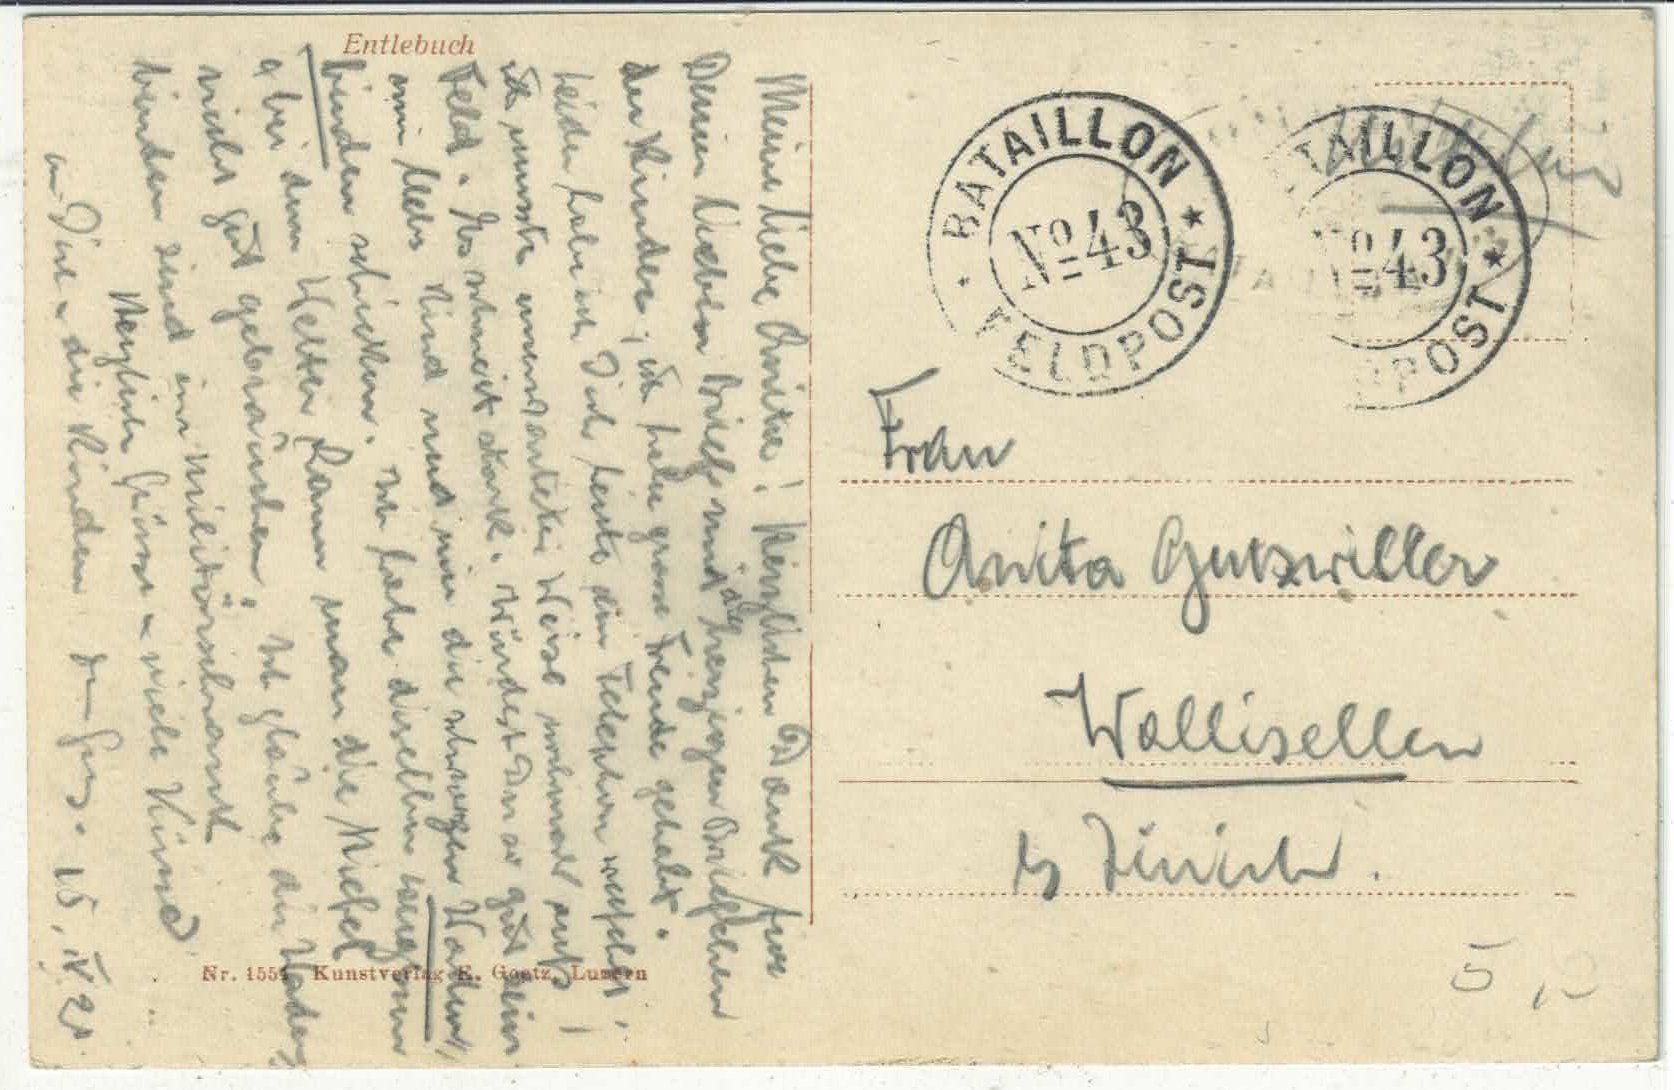 Entlebuch
Meine liebe Anita! Herzlichen Dank für
Deinen lieben Brief und die herzigen Briefchen
der Kinder, ich habe grosse Freude gehabt.
Leider habe ich Dich heute am Telephon verfehlt,
ich musste unerwarteter Weise nochmals aufs
Feld. Es schneit stark. Würdest Du so gut sein
mein liebs Kind und mir die schwarzen Waden-
binden schicken. Ich habe dieselben vergessen
aber bei dem Wetter kann man die Stiefel
nicht gut gebrauchen. Ich glaube die Waden-
binden sind im Militärschrank
Herzliche Grüsse u. viele Küsse
an Dich u. die Kinder
15. IV 21.
Nr. 155 Kunstverlag E. Goetz, Luzern
BATAILLON
No 43
FELDPOST
BATAILLON
No 43
FELDPOST
Frau
Anita Gutzwiller
Wallisellen
b/ Zürich.
5